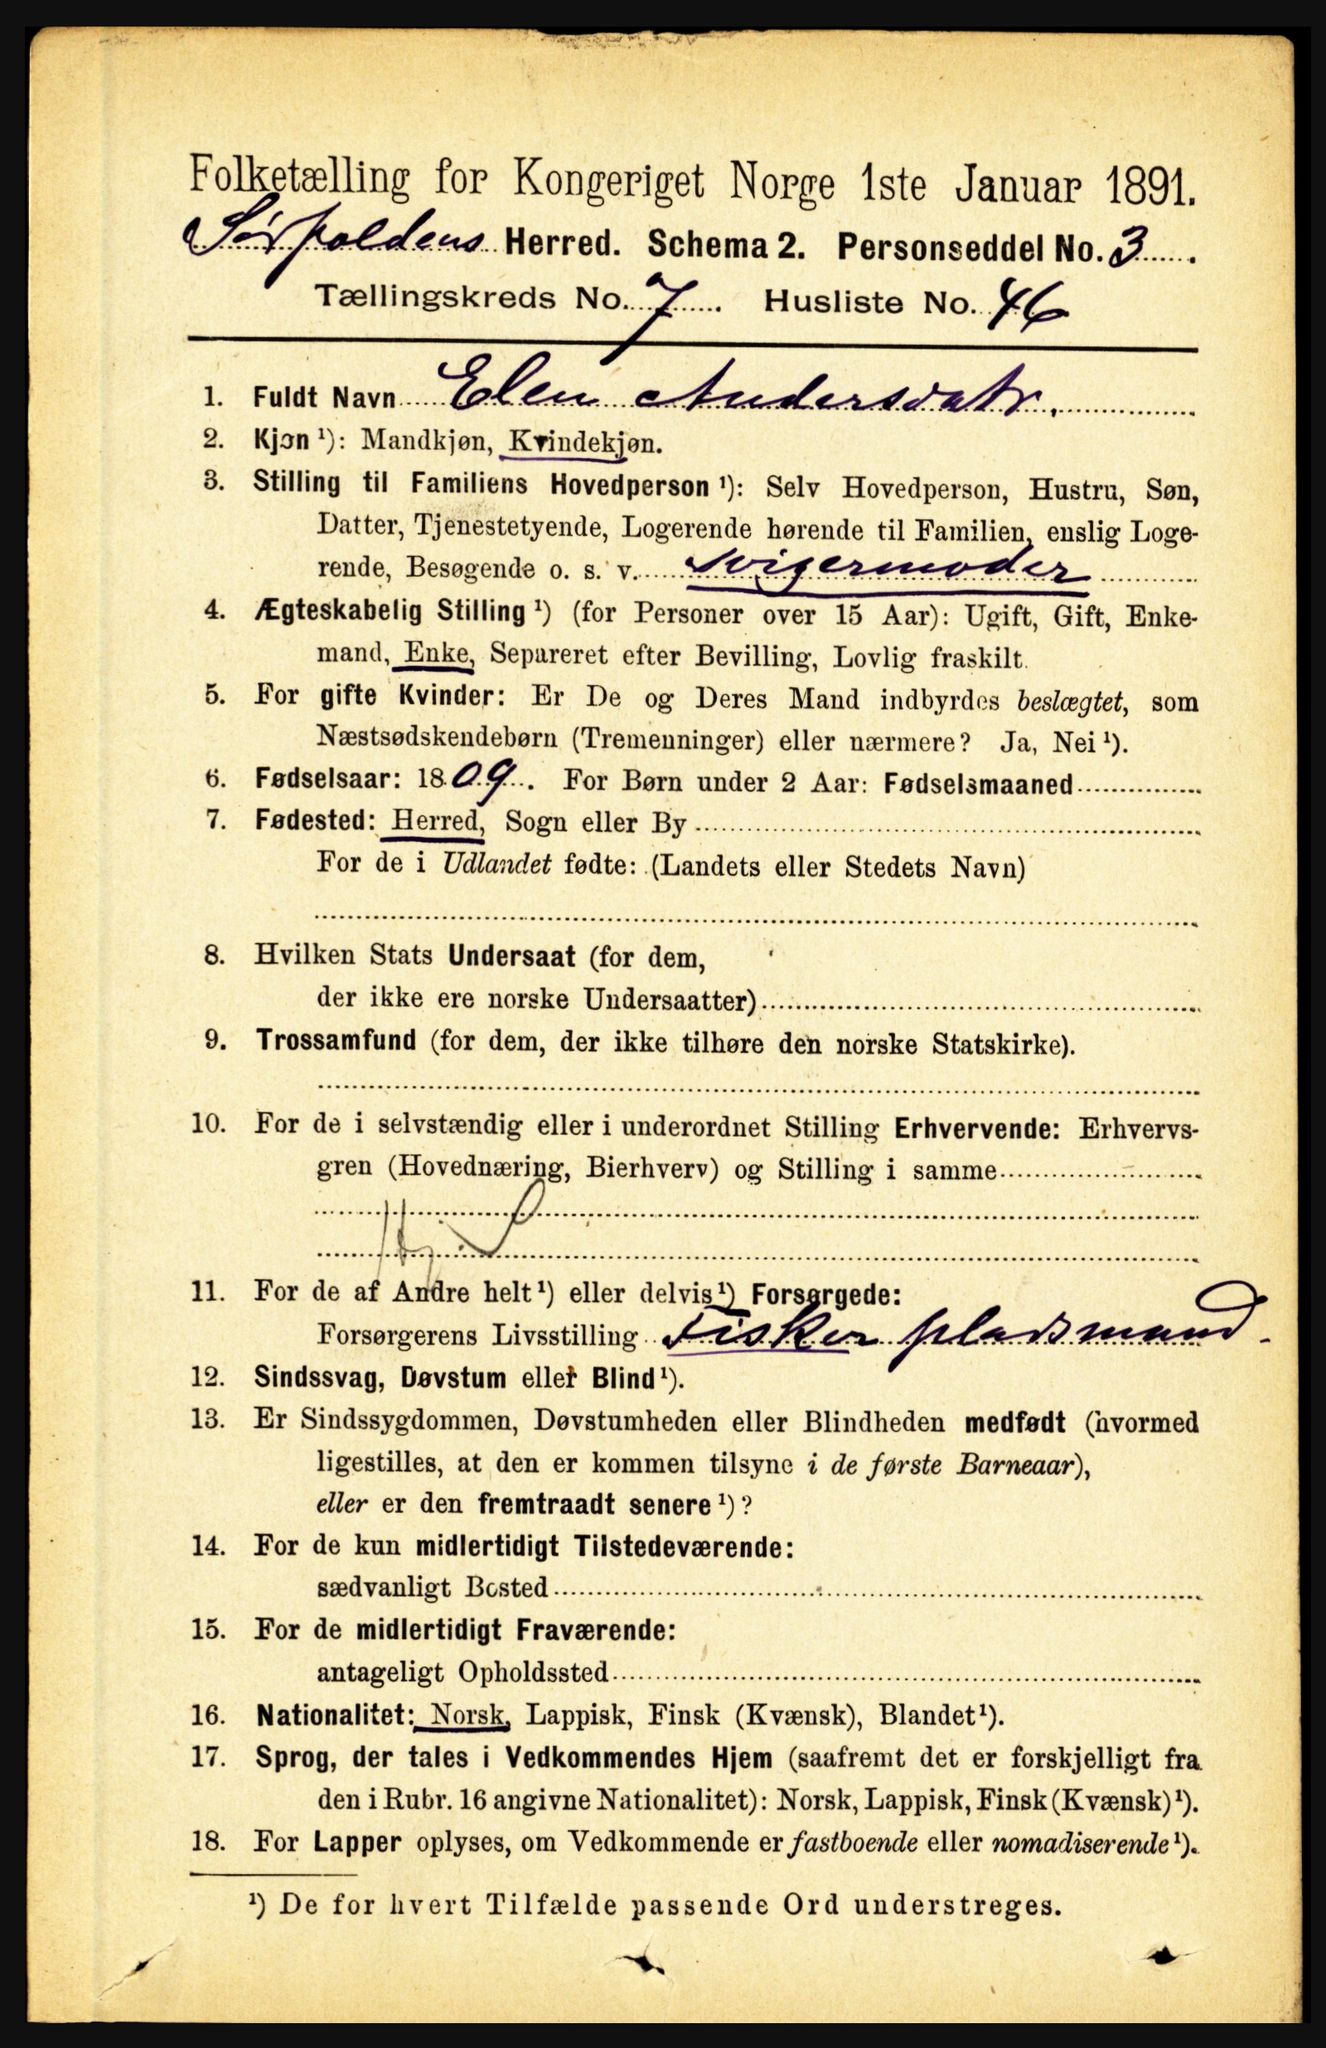 Folketælling for Kongeriget Norge 1ste Januar 1891.
Sørfoldens Herred. Schema 2. Personseddel No. 3.
Tællingskreds No. 7. Husliste No. 46
1. Fuldt Navn Elen Andersdatr.
2. Kjøn ¹): Mandkjøn, Kvindekjøn.
3. Stilling til Familiens Hovedperson ¹): Selv Hovedperson, Hustru, Søn,
Datter, Tjenestetyende, Logerende hørende til Familien, enslig Loge-
rende, Besøgende o. s. v. Svigermoder
4. Ægteskabelig Stilling ¹) (for Personer over 15 Aar): Ugift, Gift, Enke-
mand, Enke, Separeret efter Bevilling, Lovlig fraskilt.
5. For gifte Kvinder: Er De og Deres Mand indbyrdes beslægtet, som
Næstsødskendebørn (Tremenninger) eller nærmere? Ja, Nei ¹).
6. Fødselsaar: 1809. For Børn under 2 Aar: Fødselsmaaned
7. Fødested: Herred, Sogn eller By
For de i Udlandet fødte: (Landets eller Stedets Navn)
8. Hvilken Stats Undersaat (for dem,
der ikke ere norske Undersaatter)
9. Trossamfund (for dem, der ikke tilhøre den norske Statskirke).
10. For de i selvstændig eller i underordnet Stilling Erhvervende: Erhvervs-
gren (Hovednæring, Bierhverv) og Stilling i samme
11. For de af Andre helt ¹) eller delvis ¹) Forsørgede:
Forsørgerens Livsstilling Fisker pladsmand.
12. Sindssvag, Døvstum eller Blind ¹).
13. Er Sindssygdommen, Døvstumheden eller Blindheden medfødt (hvormed
ligestilles, at den er kommen tilsyne i de første Barneaar),
eller er den fremtraadt senere ¹)?
14. For de kun midlertidigt Tilstedeværende:
sædvanligt Bosted
15. For de midlertidigt Fraværende:
antageligt Opholdssted
16. Nationalitet: Norsk, Lappisk, Finsk (Kvænsk), Blandet ¹).
17. Sprog, der tales i Vedkommendes Hjem (saafremt det er forskjelligt fra
den i Rubr. 16 angivne Nationalitet): Norsk, Lappisk, Finsk (Kvænsk) ¹).
18. For Lapper oplyses, om Vedkommende er fastboende eller nomadiserende ¹).
¹) De for hvert Tilfælde passende Ord understreges.